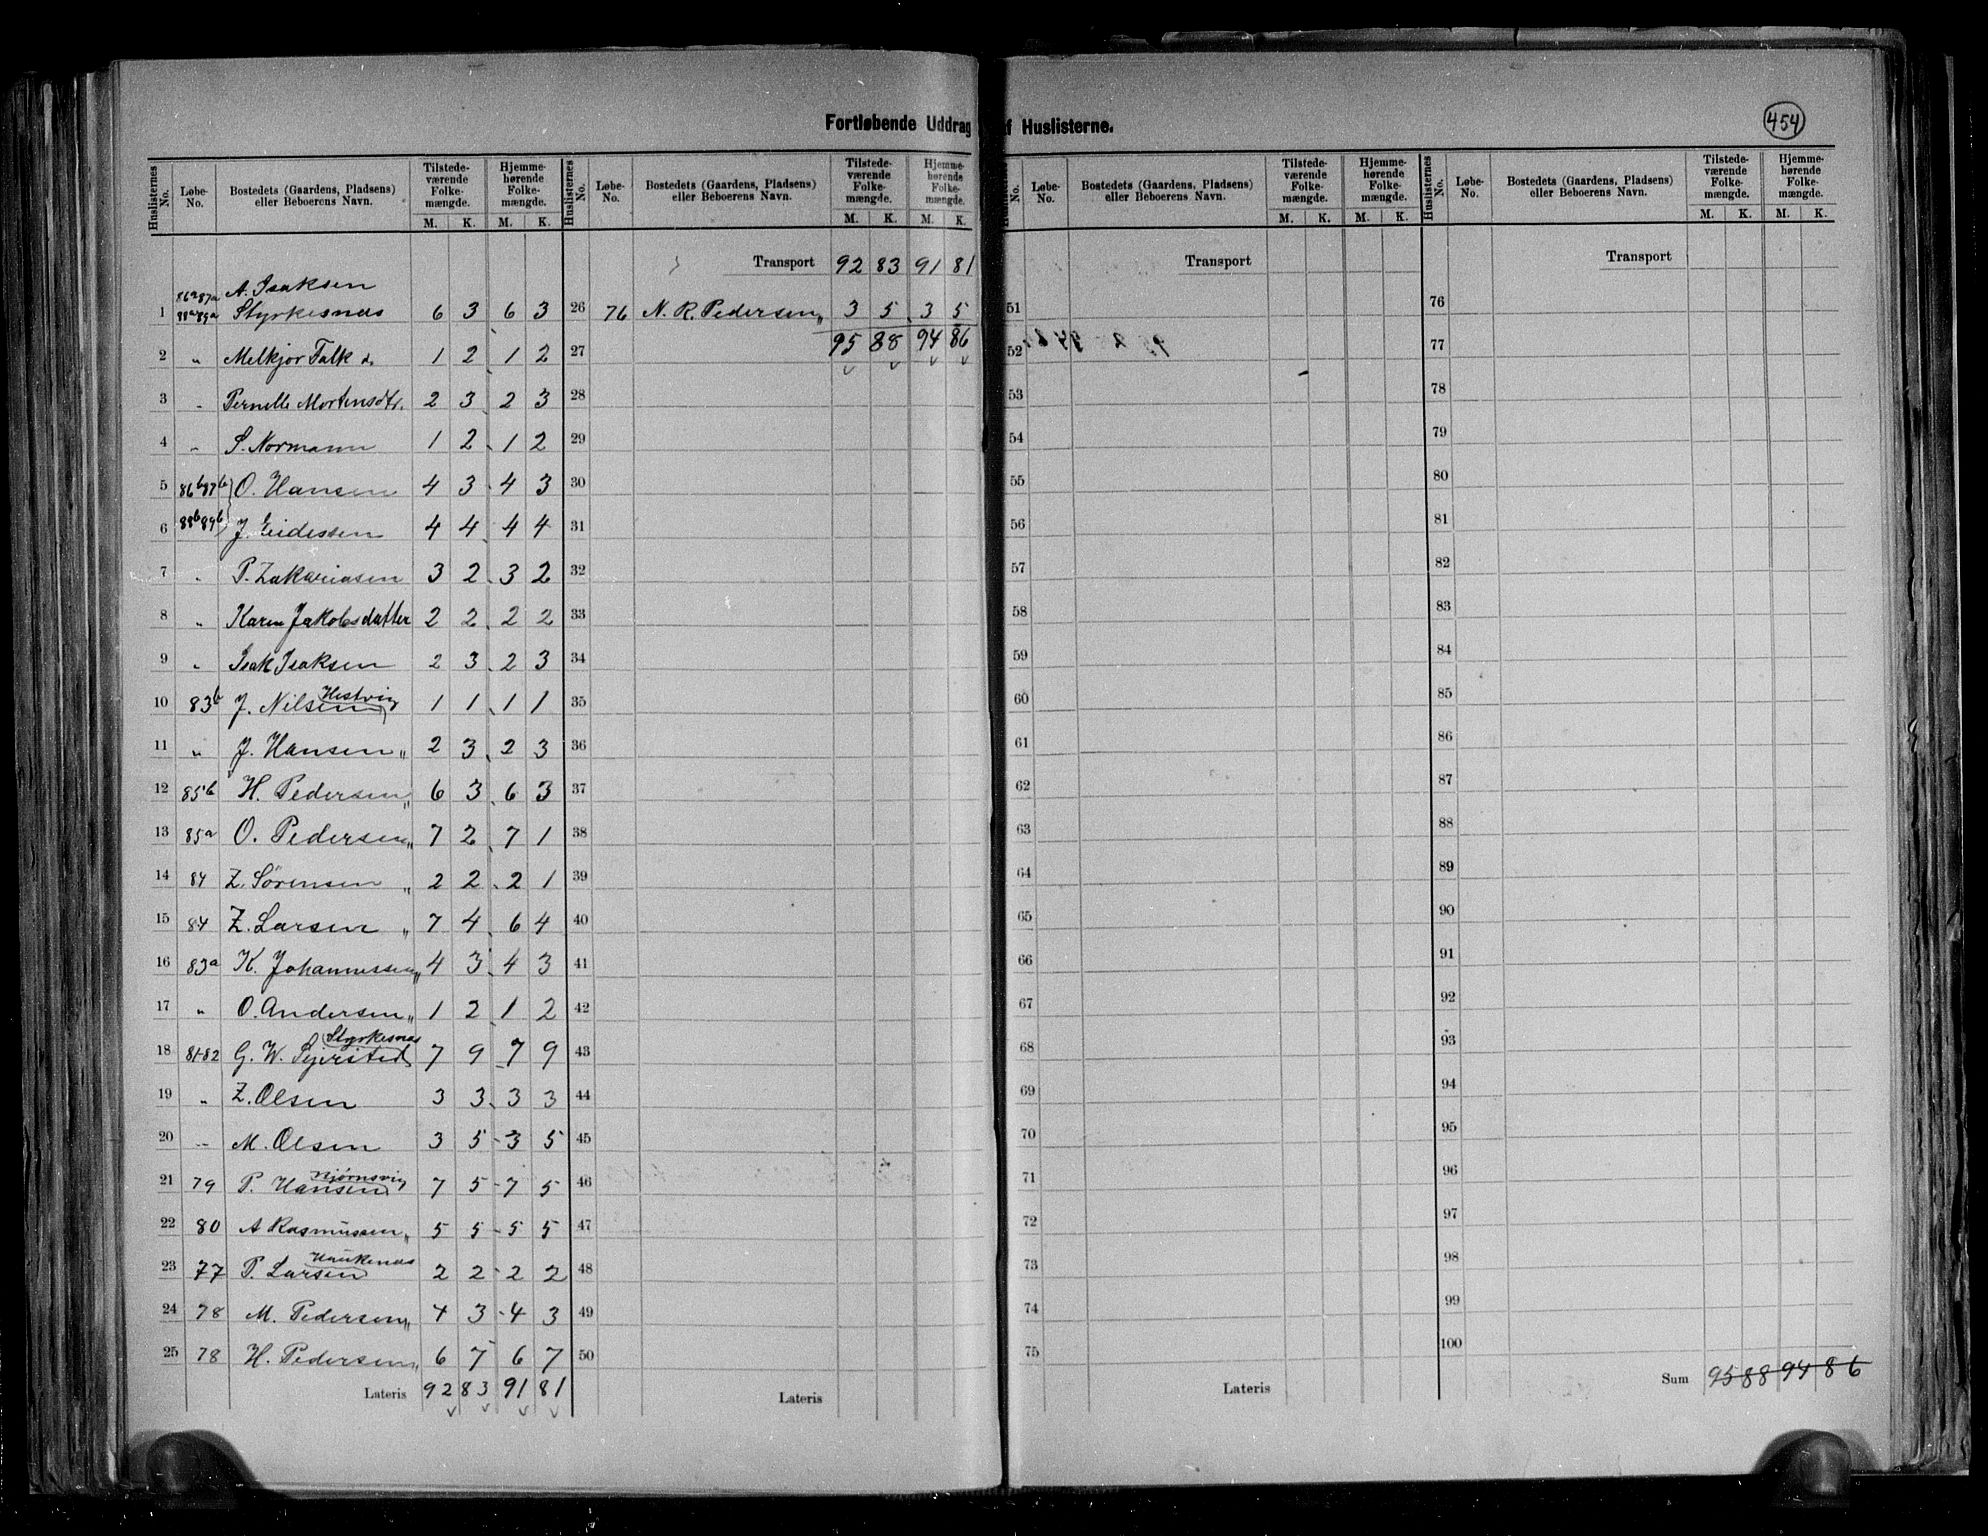 Fortløbende Uddrag af Huslisterne.
454
Huslisternes No. Løbe-No. Bostedets (Gaardens, Pladsens) eller Beboerens Navn. Tilstedeværende Folkemængde. M. K. Hjemmehørende Folkemængde. M. K.
Huslisternes No. Løbe-No. Bostedets (Gaardens, Pladsens) eller Beboerens Navn. Tilstedeværende Folkemængde. M. K. Hjemmehørende Folkemængde. M. K.
1 86a 87a 88a 89a A. Isaksen Styrkesnæs 6 3 6 3
2 " Melkjor Falk 1 2 1 2
3 " Pernelle Mortensdtr. 2 3 2 3
4 " S. Normann 1 2 1 2
5 86b 87b O. Hansen 4 3 4 3
6 88b 89b J. Eidessen 4 4 4 4
7 " P. Zakariasen 3 2 3 2
8 " Karen Jakobsdatter 2 2 2 2
9 " Isak Isaksen 2 3 2 3
10 83b J. Nilsen Hestvig 1 1 1 1
11 " J. Hansen " 2 3 2 3
12 85b H. Pedersen " 6 3 6 3
13 85a O. Pedersen " 7 2 7 1
14 84 Z. Sørensen " 2 2 2 1
15 84 Z. Larsen " 7 4 6 4
16 83a K. Johannessen " 4 3 4 3
17 " O. Andersen " 1 2 1 2
18 81-82 G. W. Sjersted Styrkesnæs 7 9 7 9
19 " Z. Olsen 3 3 3 3
20 " M. Olsen 3 5 3 5
21 79 P. Hansen Bjørnsvig 7 5 7 5
22 80 A Rasmussen " 5 5 5 5
23 77 P. Larsen Haukenæs 2 2 2 2
24 78 M. Pedersen " 4 3 4 3
25 78 H. Pedersen " 6 7 6 7
Lateris 92 83 91 81
Transport 92 83 91 81
26 76 N. R. Pedersen " 3 5 3 5
27 95 88 94 86
28
29
30
31
32
33
34
35
36
37
38
39
40
41
42
43
44
45
46
47
48
49
50
Lateris
Huslisternes No. Løbe-No. Bostedets (Gaardens, Pladsens) eller Beboerens Navn. Tilstedeværende Folkemængde. M. K. Hjemmehørende Folkemængde. M. K.
Transport
51
52
53
54
55
56
57
58
59
60
61
62
63
64
65
66
67
68
69
70
71
72
73
74
75
Lateris
Huslisternes No. Løbe-No. Bostedets (Gaardens, Pladsens) eller Beboerens Navn. Tilstedeværende Folkemængde. M. K. Hjemmehørende Folkemængde. M. K.
Transport
76
77
78
79
80
81
82
83
84
85
86
87
88
89
90
91
92
93
94
95
96
97
98
99
100
Sum 95 88 94 86